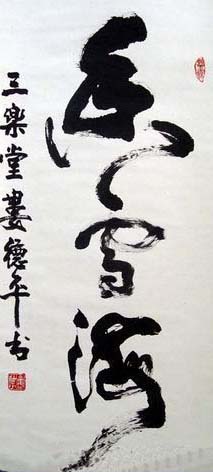 香雪海
三樂堂婁德平书